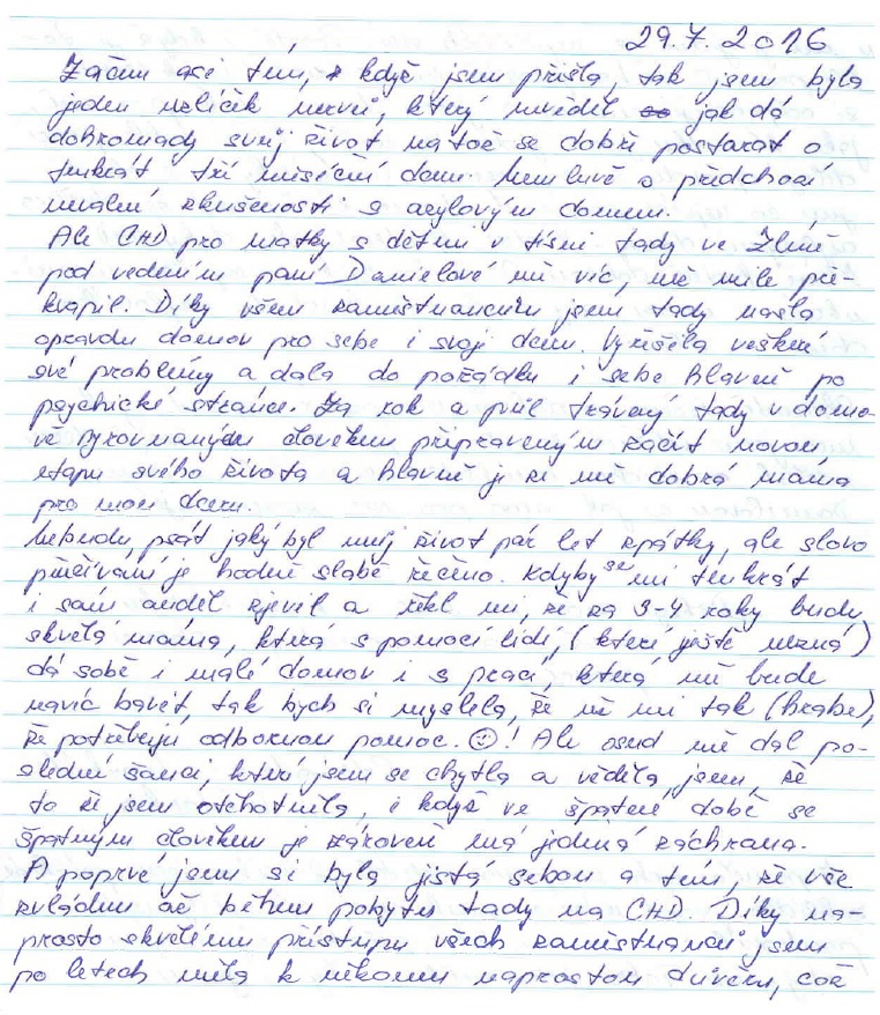 29.7.2016
Začnu asi tím, když jsem přišla, tak jsem byla
jeden uzlíček nervů, který nevěděl jak dá
dohromady svůj život natož se dobře postarat o
tenkrát tří měsíční dceru. Nemluvě o předchozí
minulé zkušenosti s azylovým domem.
Ale CHD pro matky s dětmi v tísni tady ve Zlíně
pod vedením paní Danielové mě víc, než mile pře-
kvapil. Díky všem zaměstnancům jsem tady našla
opravdu domov pro sebe i svoji dceru. Vyřešila veškeré
své problémy a dala do pořádku i sebe hlavně po
psychické stránce. Za rok a půl trávený tady v domo-
vě vyrovnaným člověkem připraveným začít novou
etapu svého života a hlavně je ze mě dobrá máma
pro mou dceru.
Nebudu psát jaký byl můj život pár let zpátky, ale slovo
přežívání je hodně slabě řečeno. Kdyby se mi tenkrát
i sám anděl zjevil a řekl mi, že za 3-4 roky budu
skvělá máma, která s pomocí lidí, (které ještě nezná)
dá sobě i malé domov i s prací, která mě bude
navíc bavit, tak bych si myslela, že už mi tak (hrabe),
že potřebuju odbornou pomoc. ☺! Ale osud mě dal po-
slední šanci, které jsem se chytla a věděla jsem, že
to že jsem otěhotněla, i když ve špatné době se
špatným člověkem je zároveň má jediná záchrana.
A poprvé jsem si byla jistá sebou a tím, že vše
zvládnu až během pobytu tady na CHD. Díky na-
prosto skvělému přístupu všech zaměstnanců jsem
po letech měla k někomu naprostou důvěru, což